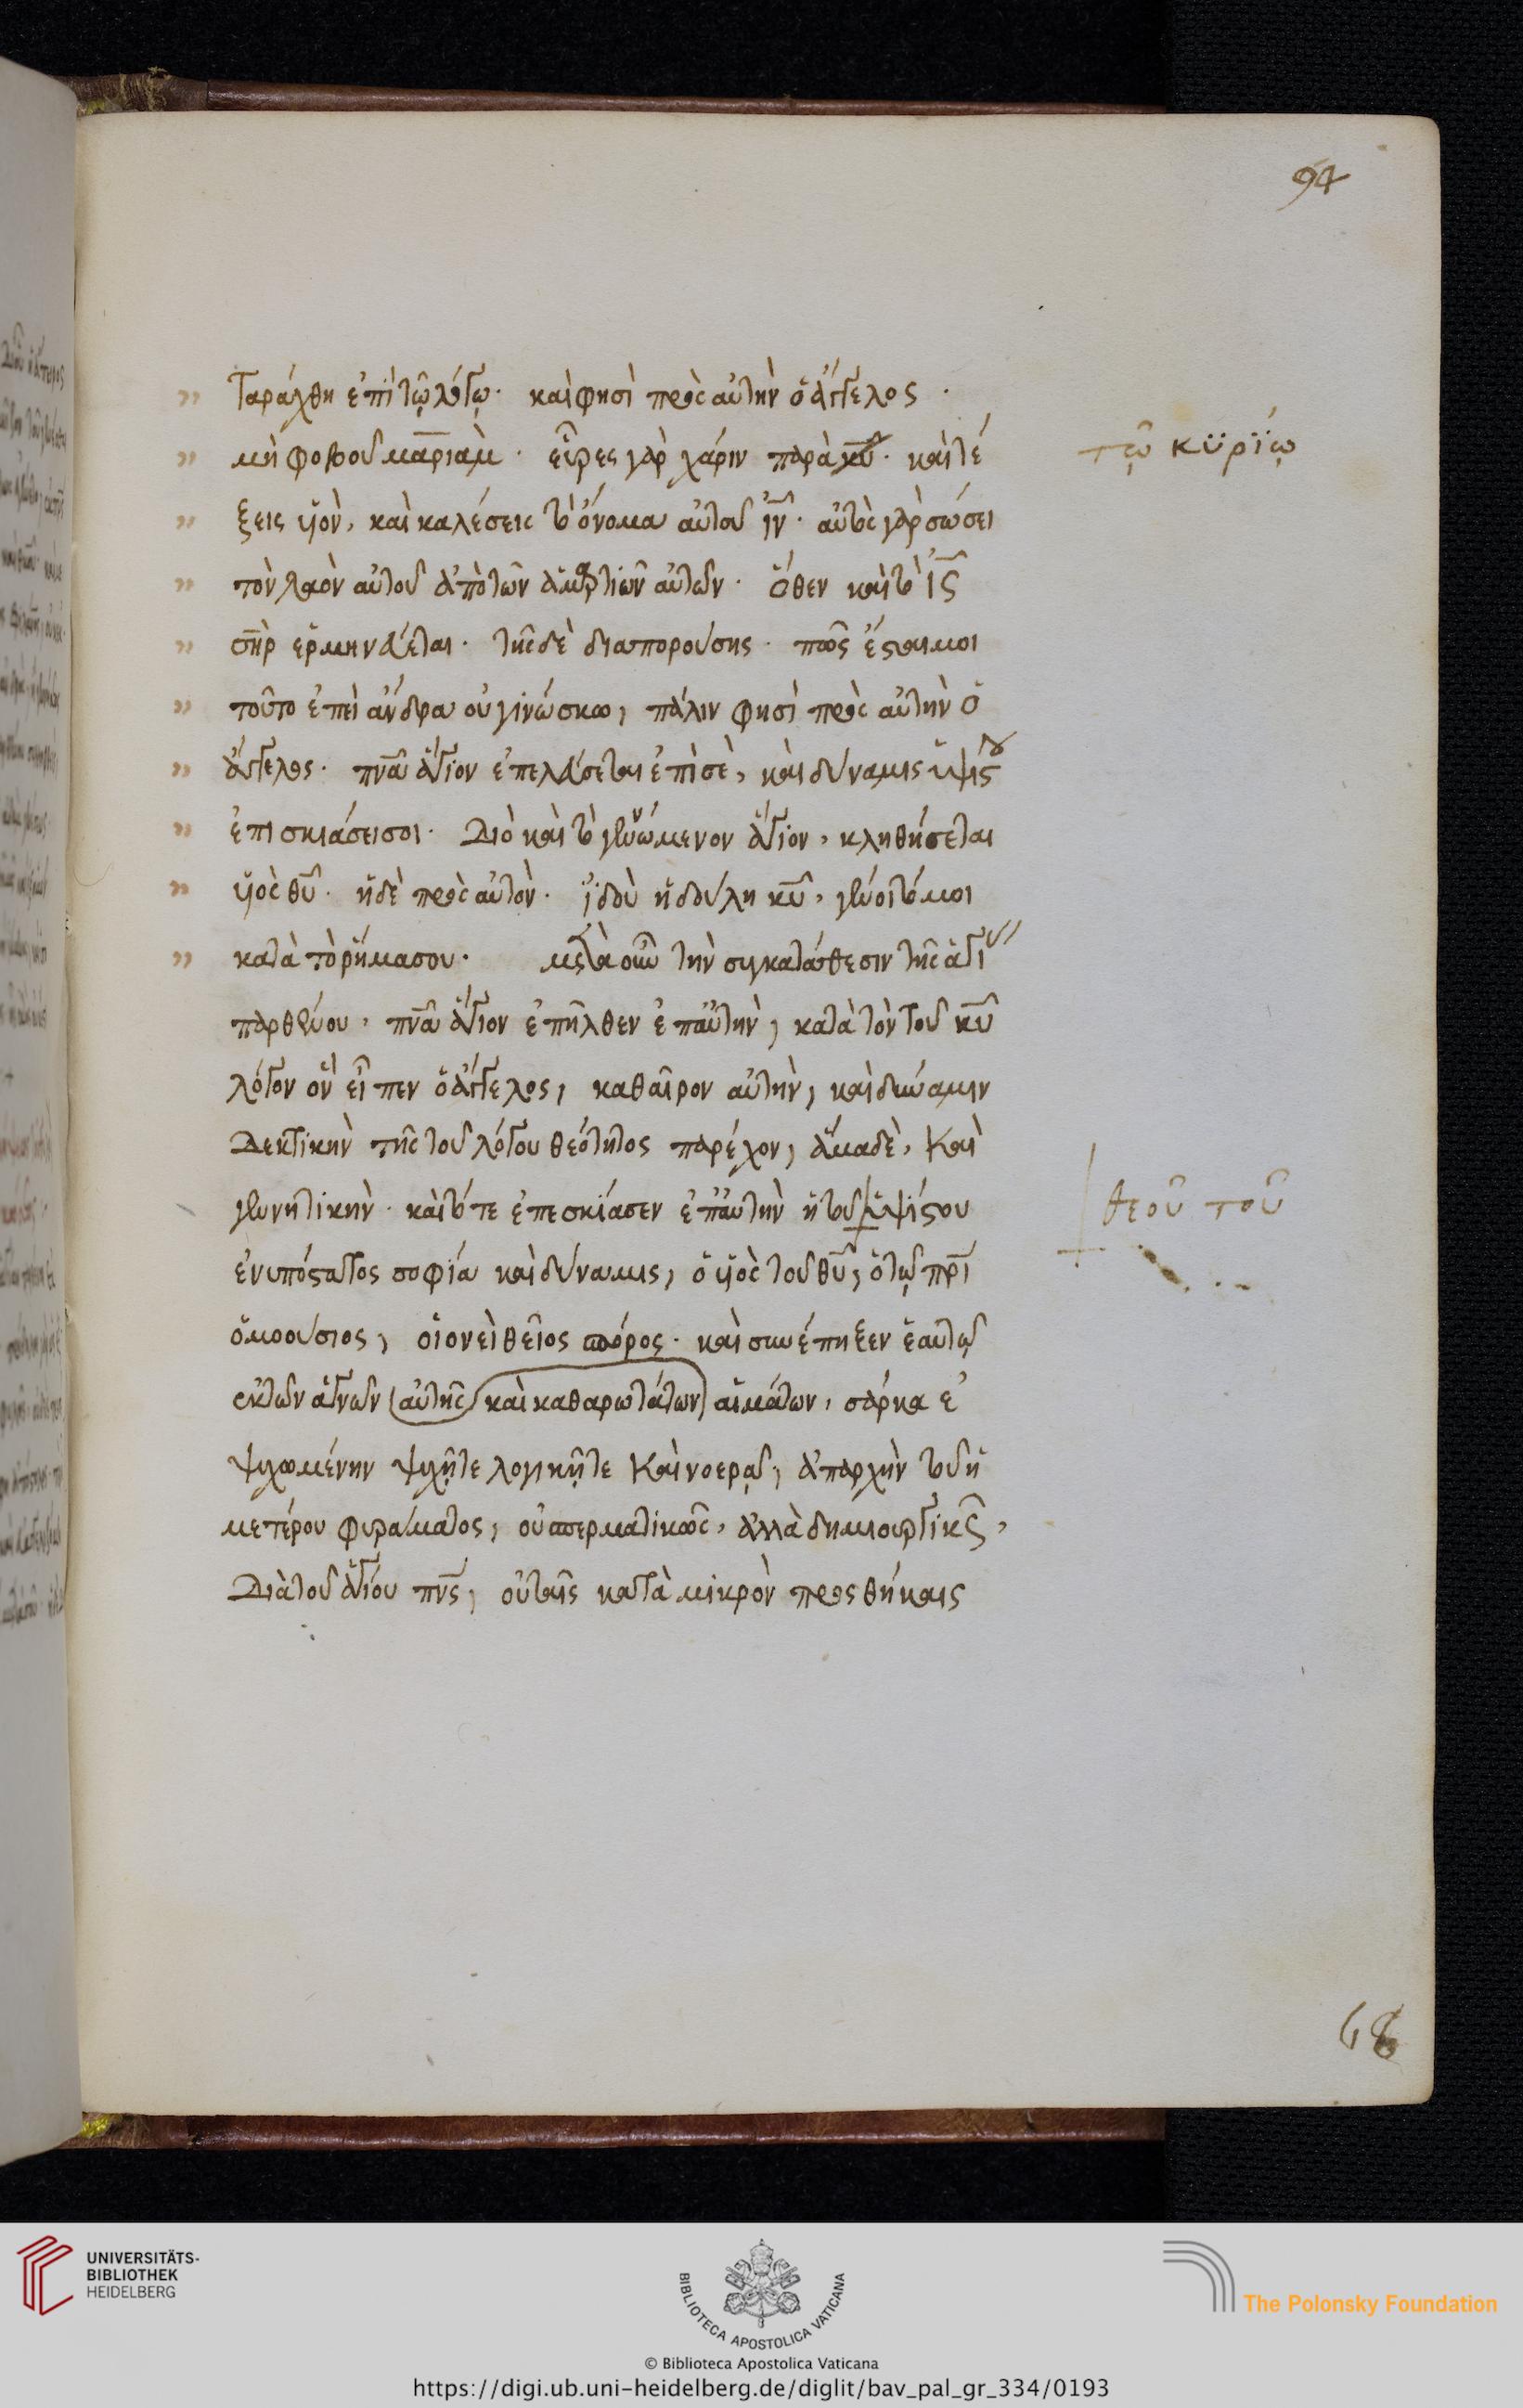 94
„ Ταράχθη ἐπὶ τῷ λόγῳ· καὶ φησὶ πρὸς αὐτὴν ὁ ἄγγελος·
„ μὴ φοβοῦ μαριὰμ· εὗρες γὰρ χάριν παρὰ κ̅υ̅· καὶ τέ
τῷ κϋρΐῳ
„ ξεις υἱὸν, καὶ καλέσεις τὸ ὄνομα αὐτοῦ ι̅ν̅· αὐτὸς γὰρ σώσει
„ τὸν λαὸν αὐτοῦ ἀπὸ τῶν ἁμαρτιῶν αὐτῶν· ὅθεν καὶ τὸ ι̅ς̅
„ σ̅η̅ρ̅ ἑρμηνεύεται· τῆς δὲ διαπορούσης· πῶς ἔσται μοι
„ τοῦτο ἐπεὶ ἄνδρα οὐ γινώσκω, πάλιν φησὶ πρὸς αὐτὴν ὁ
„ ἄγγελος· π̅ν̅α̅ ἅγιον ἐπελεύσεται ἐπὶ σὲ, καὶ δύναμις ὑψίστου
„ ἐπισκιάσει σοι· Διὸ καὶ τὸ γεννώμενον ἅγιον, κληθήσεται
„ υἱὸς θ̅υ̅· ἡ δὲ πρὸς αὐτὸν· ἰδοὺ ἡ δούλη κ̅υ̅, γένοιτό μοι
„ κατὰ τὸ ρῆμα σου· μετὰ οὖν τὴν συγκατάθεσιν τῆς ἁγί
παρθένου, π̅ν̅α̅ ἅγιον ἐπῆλθεν ἐπ' αὐτὴν, κατὰ τὸν τοῦ κ̅υ̅
λόγον ὃν εἶπεν ὁ ἄγγελος, καθαῖρον αὐτὴν, καὶ δύναμιν
Δεκτικὴν τῆς τοῦ λόγου θεότητος παρέχον, ἅμα δὲ, Καὶ
γεννητικὴν· καὶ τότε ἐπεσκίασεν ἐπ' αὐτὴν ἡ τοῦ ὑψίστου
θεοῦ τοῦ
ἐνυπόστατος σοφία καὶ δύναμις, ὁ υἱὸς τοῦ θ̅υ̅, ὁ τῷ π̅ρ̅ι̅
ὁμοούσιος, οἱονεὶ θεῖος σπόρος· καὶ συνέπηξεν ἑαυτῷ
ἐκ τῶν ἁγνῶν (αὐτῆς) (καὶ καθαρωτάτων) αἱμάτων, σάρκα ἐ
ψυχωμένην ψυχῇ τε λογικῇ τε Καὶ νοερᾷ, ἀπαρχὴν τοῦ ἡ
μετέρου φυράματος, οὐ σπερματικῶς, ἀλλὰ δημιουργικῶς,
Διὰ τοῦ ἁγίου π̅ν̅ς̅, οὐ ταῖς κατὰ μικρὸν προσθήκαις
68
UNIVERSITÄTS-
BIBLIOTHEK
HEIDELBERG
BIBLIOTECA APOSTOLICA VATICANA
The Polonsky Foundation
© Biblioteca Apostolica Vaticana
https://digi.ub.uni-heidelberg.de/diglit/bav_pal_gr_334/0193